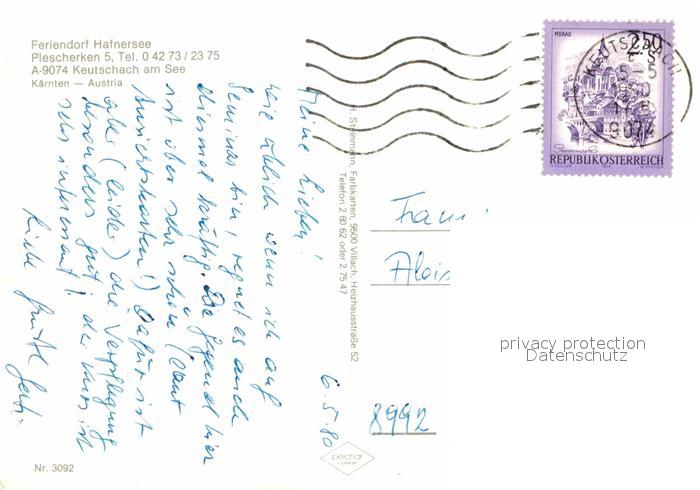 Feriendorf Hafnersee
Plescherken 5, Tel. 0 42 73 / 23 75
A-9074 Keutschach am See
Kärnten — Austria
Meine Lieben!
Wie üblich wenn ich auf
Seminar bin, regnet es auch
diesmal kräftig. Die Gegend hier
ist aber sehr schön (laut
Ansichtskarten!) Dafür ist
aber (leider) die Verpflegung
besonders gut; der Kurs ist
sehr interessant!
Liebe Grüße
6.5.80
H. Steinmann, Farbkarten, 9500 Villach, Heizhausstraße 52
Telefon 2 80 62 oder 2 75 47
MURAU
2.50
S
REPUBLIK ÖSTERREICH
KEUTSCHACH
9074
Alois
8992
privacy protection
Datenschutz
Nr. 3092